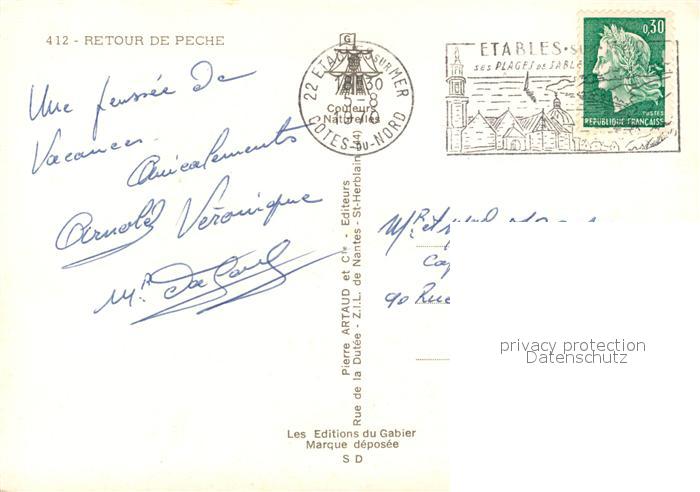 412 - RETOUR DE PECHE
Une pensée de
Vacances.
Amicalements
Arnold Véronique
Mr
G
22 ETABLES SUR MER
30
-8
COTES-DU-NORD
Couleurs
Naturelles
ETABLES-S
SES PLAGES DE SABLE
0,30
POSTES
REPUBLIQUE FRANÇAISE
Pierre ARTAUD et Cie - Editeurs
Rue de la Dutée - Z.I.L. de Nantes - St-Herblain (44)
Mr et
90 Rue
privacy protection
Datenschutz
Les Editions du Gabier
Marque déposée
S D